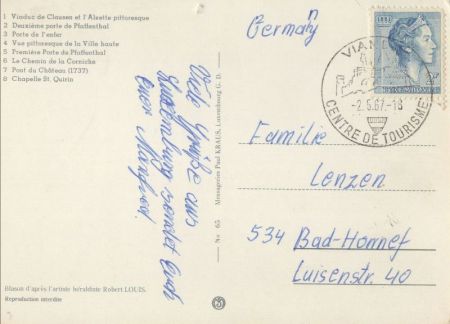 1 Viaduc de Clausen et l'Alzette pittoresque
2 Deuxième porte de Pfaffenthal
3 Porte de l'enfer
4 Vue pittoresque de la Ville haute
5 Première Porte de Pfaffenthal
6 Le Chemin de la Corniche
7 Pont du Château (1737)
8 Chapelle St. Quirin
Viele Grüße aus
Luxemburg sendet Euch
Euer Manfred
Blason d'après l'artiste héraldiste Robert LOUIS.
Reproduction interdite
No 65 Messageries Paul KRAUS, Luxembourg G. D.
Germany
VIANDEN
2.5.67-18
CENTRE DE TOURISME
Familie
Lenzen
534 Bad-Honnef
Luisenstr. 40